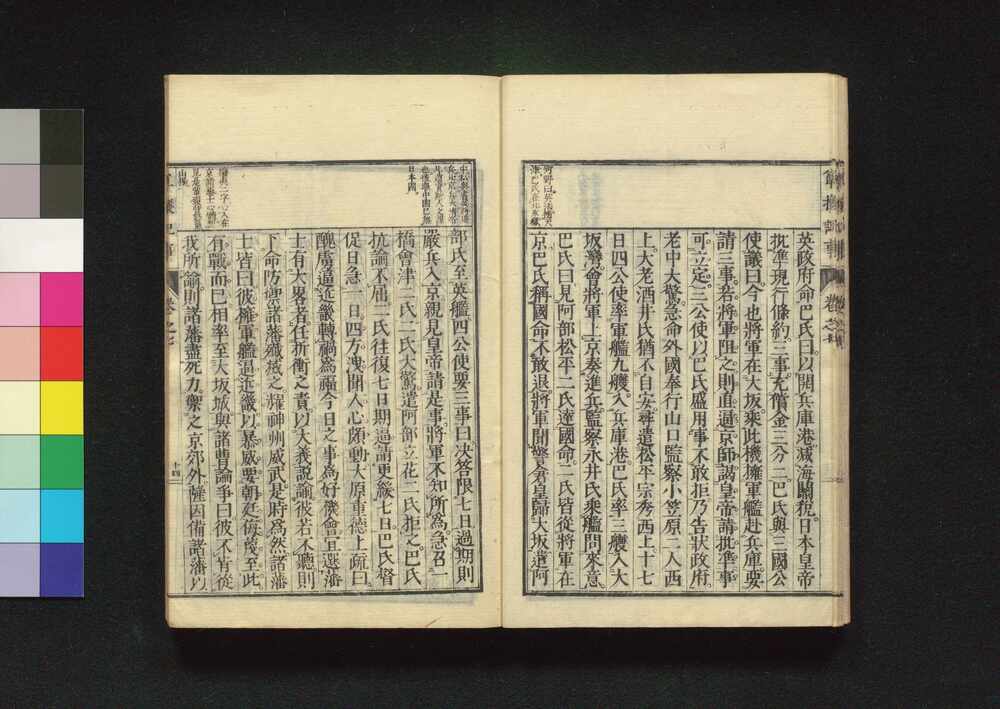 英政府命巴氏曰以開兵庫港減海關稅日本皇帝
批準現行條約三事充償金三分二巴氏與三國公
使議曰今也將軍在大坂乘此機擁軍艦赴兵庫要
請三事若將軍阻之則直逼京師謁皇帝請批準事
可立定三公使以巴氏盛用事不敢拒乃告狀政府
老中大驚急命外國奉行山口監察小笠原二人西
上大老酒井氏猶不自安尋遣松平宗秀西上十七
日四公使率軍艦九艘入兵庫港巴氏率三艘入大
坂灣會將軍上京奏進兵監察永井氏乘艦問來意
巴氏曰見阿部松平二氏達國命二氏皆從將軍在
京巴氏稱國命不敢退將軍聞警倉皇歸大坂遣阿
部氏至英艦四公使要三事曰決答限七日過期則
嚴兵入京親見皇帝請是事將軍不知所為急召一
橋會津二氏二氏大驚遣阿部立花二氏拒之巴氏
抗論不屈二氏往復七日期逼請更緩七日巴氏督
促日急一日四方洩聞人心頗動大原重德上疏曰
醜虜逼近畿轉禍為福今日之事為好機會宜選藩
士有大畧者任折衝之責以大義說諭彼若不聽則
下命防禦諸藩殲滅之耀神州威武是時為然諸藩
士皆曰彼擁軍艦逼近畿以暴威要朝廷侮蔑至此
有戰而已相率至大坂城與諸曹論爭曰彼不肯從
我所諭則諸藩盡死力禦之京郊外薩因備諸藩以
卷之七
十四
日本四